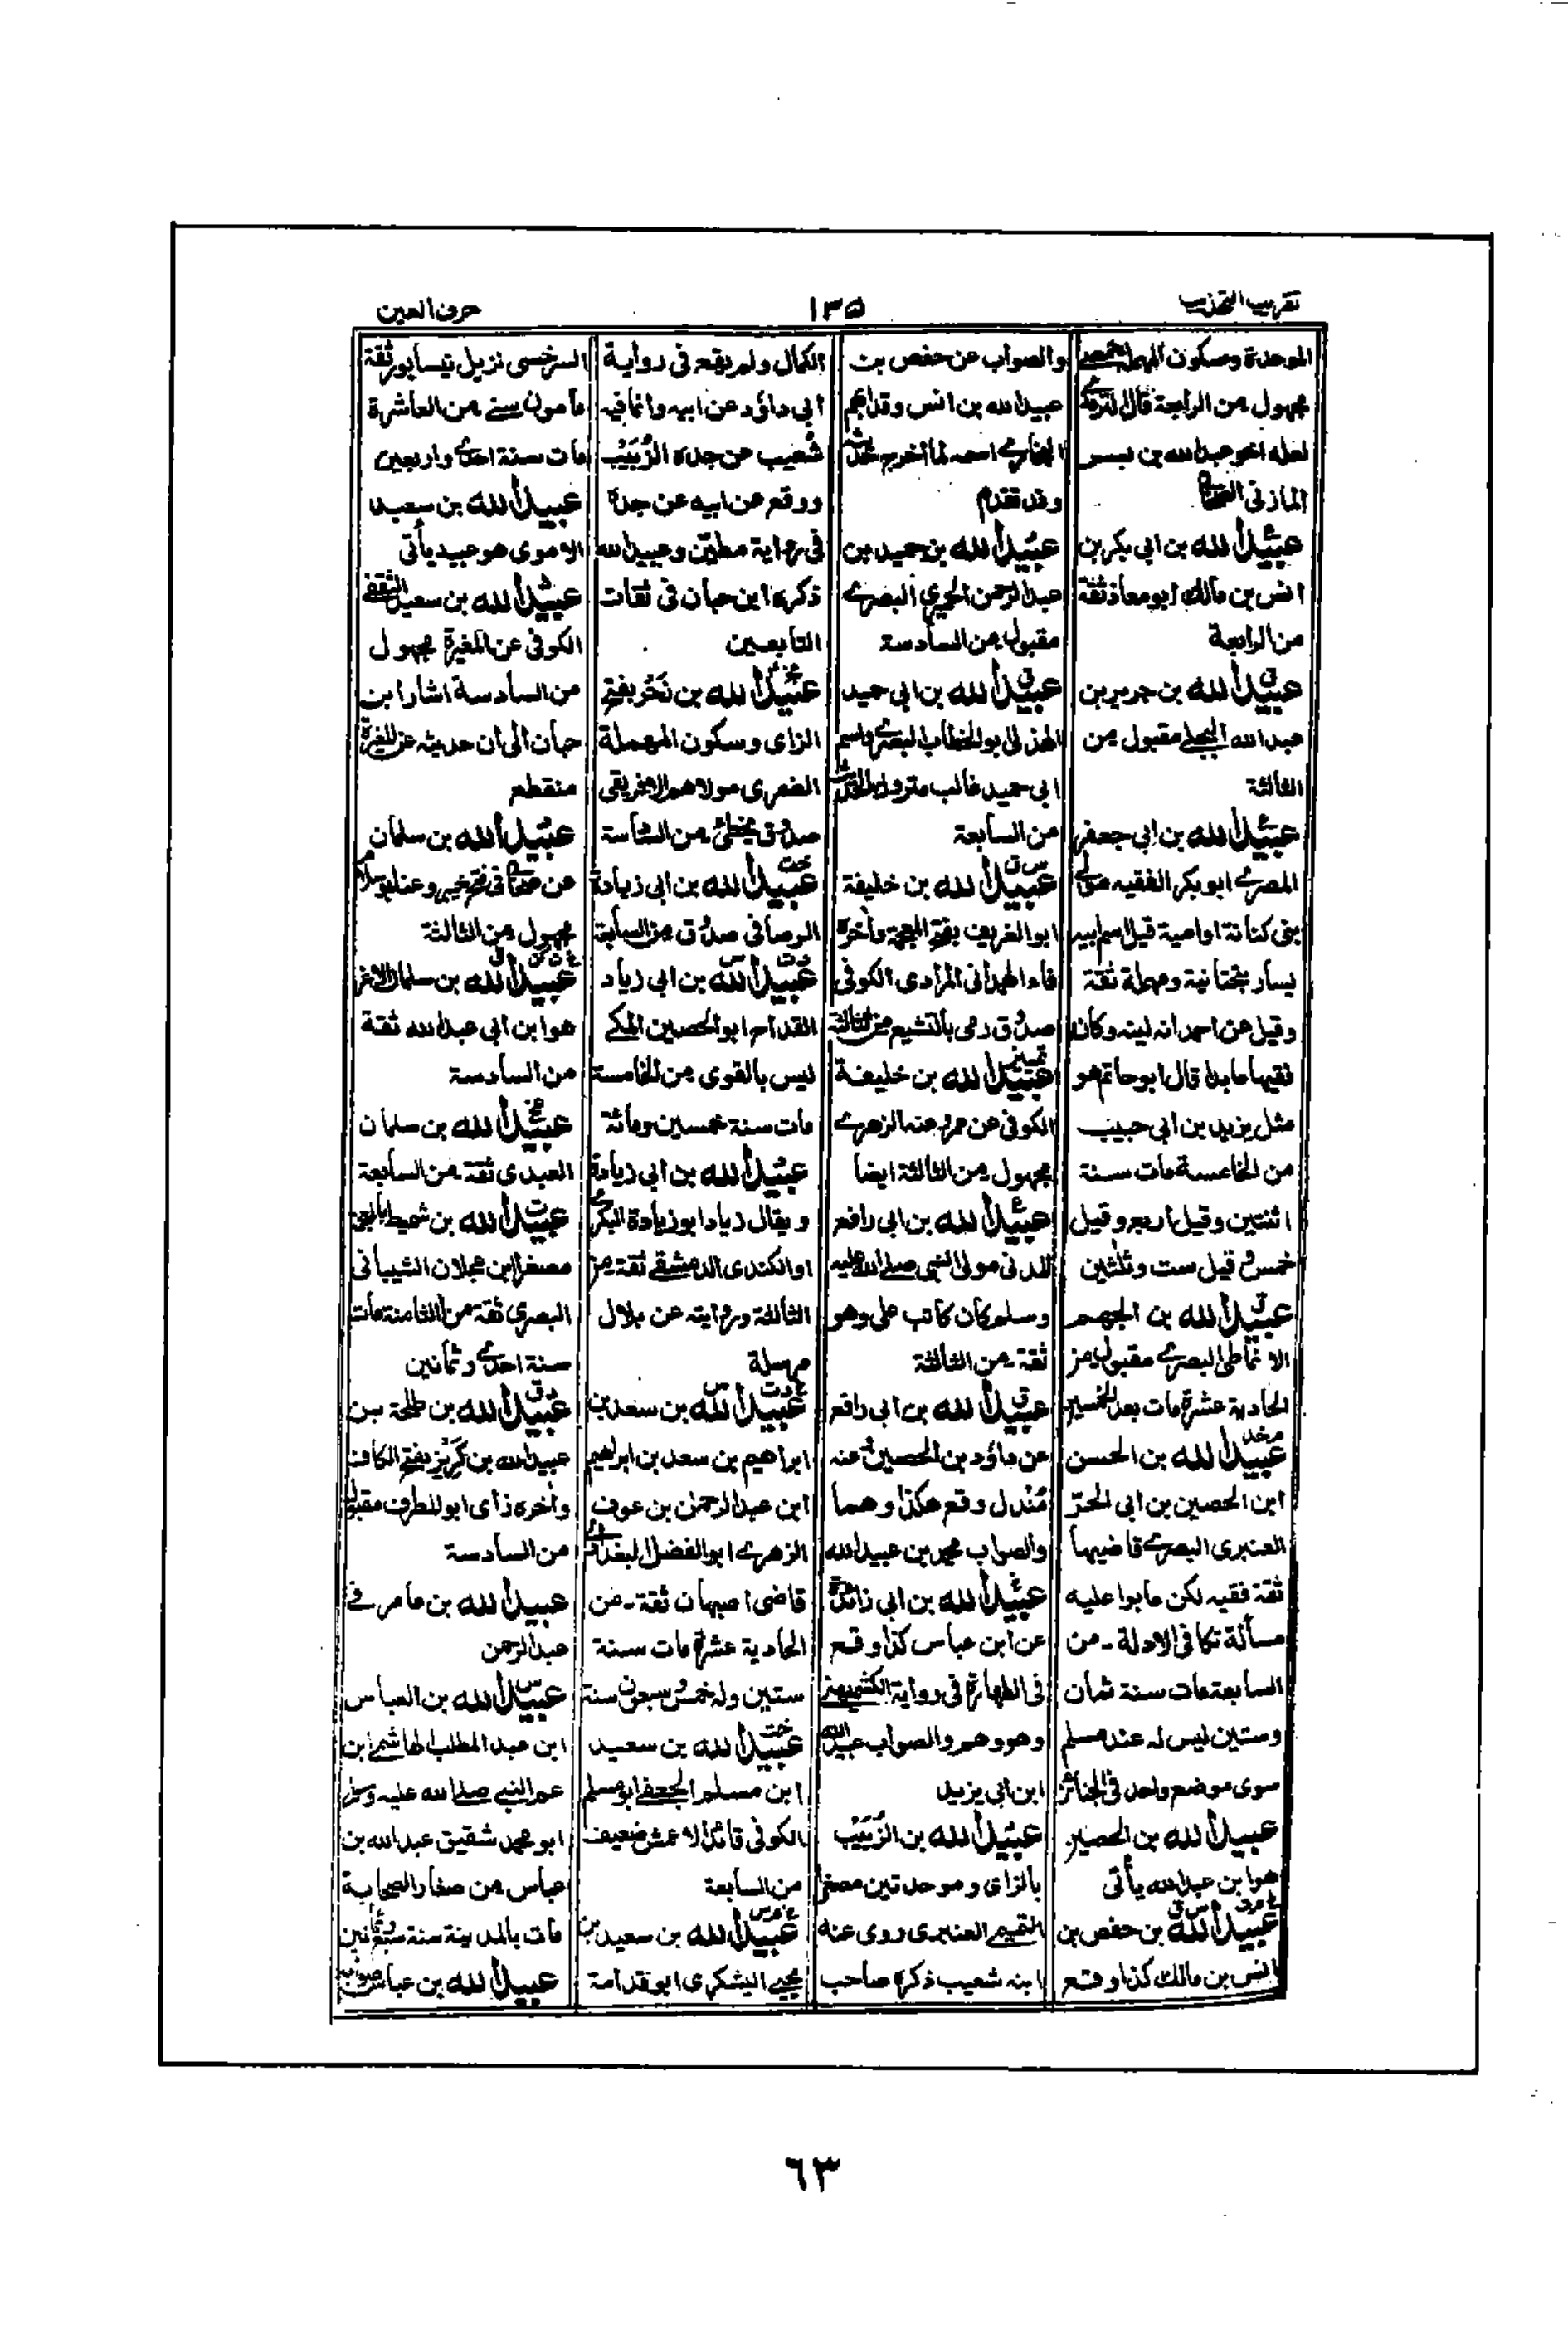 تقريب التهذيب
١٣٥
حرف العين
الموحدة وسكون المهملة حمصي
مجهول من الرابعة قال الترمذي
لعله اخو عبد الله بن بسر
المازني الصحابي
عبيد الله بن ابى بكر بن
انس بن مالك ابو معاذ ثقة
من الرابعة
عبيد الله بن جرير بن
عبد الله البجلي مقبول من
الثالثة
عبيد الله بن ابى جعفر
المصرے ابو بكر الفقيه مولى
بنى كنانة او امية قيل اسم ابيه
يسار بتحتانية ومهملة ثقة
وقيل عن احمد انه لينه وكان
فقيها عابدا قال ابو حاتم هو
مثل يزيد بن ابى حبيب
من الخامسة مات سنة
اثنتين وقيل اربع وقيل
خمس وقيل ست وثلثين
عبيد الله بن الجهم
الانماطى البصرے مقبول من
الحادية عشرة مات بعد الخمسين
عبيد الله بن الحسن
ابن الحصين بن ابى الحر
العنبرى البصرے قاضيها
ثقة فقيه لكن عابوا عليه
مسألة تكافى الادلة ـ من
السابعة مات سنة ثمان
وستين ليس له عند مسلم
سوى موضع واحد فى الجنائز
عبيد الله بن الحصين
هو ابن عبد الله يأتى
عبيد الله بن حفص بن
انس بن مالك كذا وقع
والصواب عن حفص بن
عبيد الله بن انس
البخارے اسمه لما اخرج حديثه
وقد تقدم
عبيد الله بن حميد بن
عبد الرحمن الحميري البصرے
مقبول من السادسة
عبيد الله بن ابى حميد
الهذلى ابو الخطاب البصرے واسم
ابى حميد غالب متروك الحديث
من السابعة
عبيد الله بن خليفة
ابو الغريف بفتح المعجمة وآخره
فاء الهمدانى المرادى الكوفى
صدوق رمى بالتشيع من الثالثة
عبيد الله بن خليفة
الكوفى عن عمر وعنه الزهرے
مجهول من الثالثة ايضا
عبيد الله بن ابى رافع
المدنى مولى النبى صلى الله عليه
وسلم كان كاتب على وهو
ثقة ـ من الثالثة
عبيد الله بن ابى رافع
عن داؤد بن الحصين وعنه
مُندل وقع هكذا وهما
والصواب محمد بن عبيد الله
عبيد الله بن ابى زائدة
عن ابن عباس كذا وقع
فى الطهارة فى رواية الكشميهنى
وهو وهم والصواب عبيد الله
ابن ابى يزيد
عبيد الله بن الزُّبَيْب
بالزاى وموحدتين مصغر
التميمى العنبرى روى عنه
ابنه شعيب ذكره صاحب
الكمال ولم يقع فى رواية
ابى داؤد عن ابيه وانما فيه
شُعيب عن جده الزُّبَيْب
ووقع عن ابيه عن جده
فى رواية مطين وعبيد الله
ذكره ابن حبان فى ثقات
التابعين
عبيد الله بن زَحْر بفتح
الزاى وسكون المهملة
الضمرى مولاهم الافريقى
صدوق يخطئ من السادسة
عبيد الله بن ابى زيادة
الرصافى صدوق من السابعة
عبيد الله بن ابى زياد
القداح ابو الحصين المكے
ليس بالقوى من الخامسة
مات سنة خمسين ومائة
عبيد الله بن ابى زيادة
ويقال زياد ابو زيادة البكرے
او الكندى الدمشقے ثقة من
الثالثة وروايته عن بلال
مرسلة
عبيد الله بن سعد بن
ابراهيم بن سعد بن ابراهيم
ابن عبد الرحمن بن عوف
الزهرے ابو الفضل البغدادي
قاضى اصبهان ثقة ـ من
الحادية عشرة مات سنة
ستين وله خمس وسبعون سنة
عبيد الله بن سعيد
ابن مسلم الجعفے ابو مسلم
الكوفى قائد الاعمش ضعيف
من السابعة
عبيد الله بن سعيد بن
يحيى اليشكرى ابو قدامة
السرخسى نزيل نيسابور ثقة
مأمون سنے من العاشرة
مات سنة احدے واربعين
عبيد الله بن سعيد
الاموى هو عبيد يأتى
عبيد الله بن سعيد الثقفے
الكوفى عن المغيرة مجهول
من السادسة اشار ابن
حبان الى ان حديثه عن المغيرة
منقطع
عبيد الله بن سلمان
عن صحابى فى فتح خيبر وعنه ابو سلام
مجهول من الثالثة
عبيد الله بن سلمان الاغر
هو ابن ابى عبد الله ثقة
من السادسة
عبيد الله بن سلمان
العبدى ثقة من السابعة
عبيد الله بن شميط بالمعجمة
مصغر ابن عجلان الشيبانى
البصرى ثقة من الثامنة مات
سنة احدے وثمانين
عبيد الله بن طلحة بن
عبيد الله بن كَرِيز بفتح الكاف
وآخره زاى ابو المطرف مقبول
من السادسة
عبيد الله بن عامر فے
عبد الرحمن
عبيد الله بن العباس
ابن عبد المطلب الهاشمى ابن
عم النبى صلى الله عليه وسلم
ابو محمد شقيق عبد الله بن
عباس من صغار الصحابة
مات بالمدينة سنة سبع وثمانين
عبيد الله بن عباس صوابه
٦٣